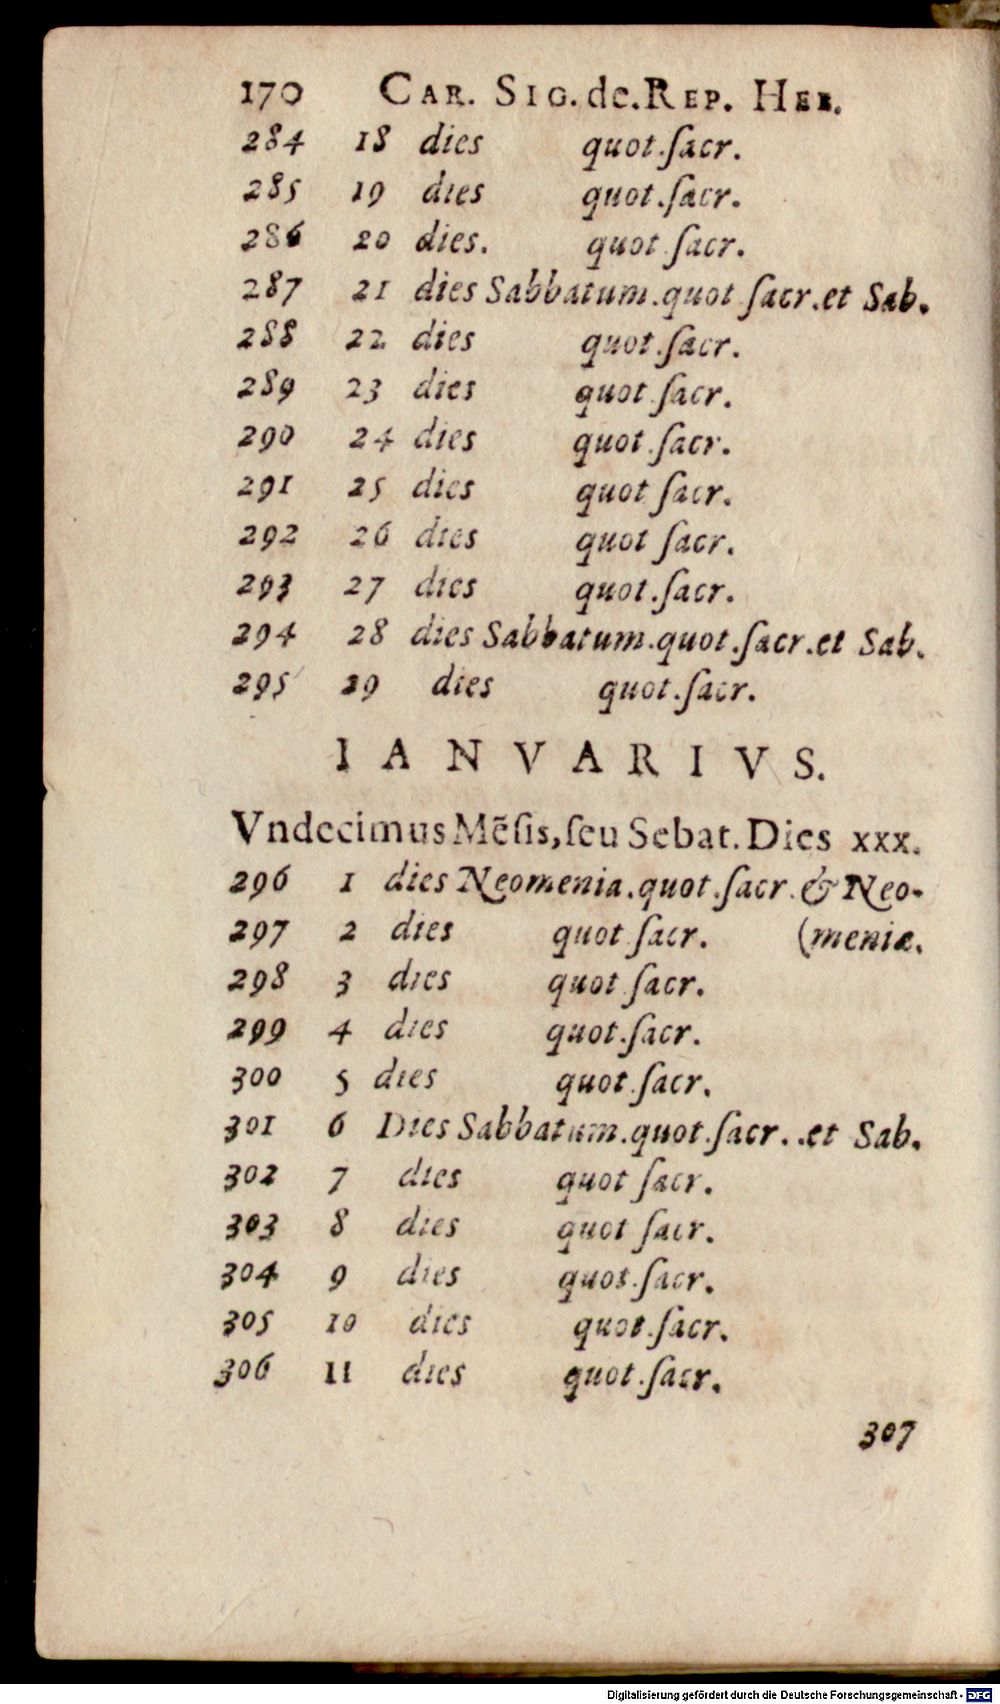 170 CAR. SIG. de. REP. HEB.
284 18 dies quot.ſacr.
285 19 dies quot.ſacr.
286 20 dies. quot ſacr.
287 21 dies Sabbatum.quot ſacr.et Sab.
288 22 dies quot.ſacr.
289 23 dies quot.ſacr.
290 24 dies quot.ſacr.
291 25 dies quot ſacr.
292 26 dies quot ſacr.
293 27 dies quot.ſacr.
294 28 dies Sabbatum.quot.ſacr.et Sab.
295 29 dies quot.ſacr.
IANVARIVS.
Vndecimus Mẽſis, ſeu Sebat. Dies xxx.
296 1 dies Neomenia.quot.ſacr.& Neo-
297 2 dies quot ſacr. (meniæ.
298 3 dies quot ſacr.
299 4 dies quot.ſacr.
300 5 dies quot.ſacr.
301 6 Dies Sabbatum.quot.ſacr..et Sab.
302 7 dies quot ſacr.
303 8 dies quot ſacr.
304 9 dies quot.ſacr.
305 10 dies quot.ſacr.
306 11 dies quot.ſacr.
307
Digitalisierung gefördert durch die Deutsche Forschungsgemeinschaft - DFG